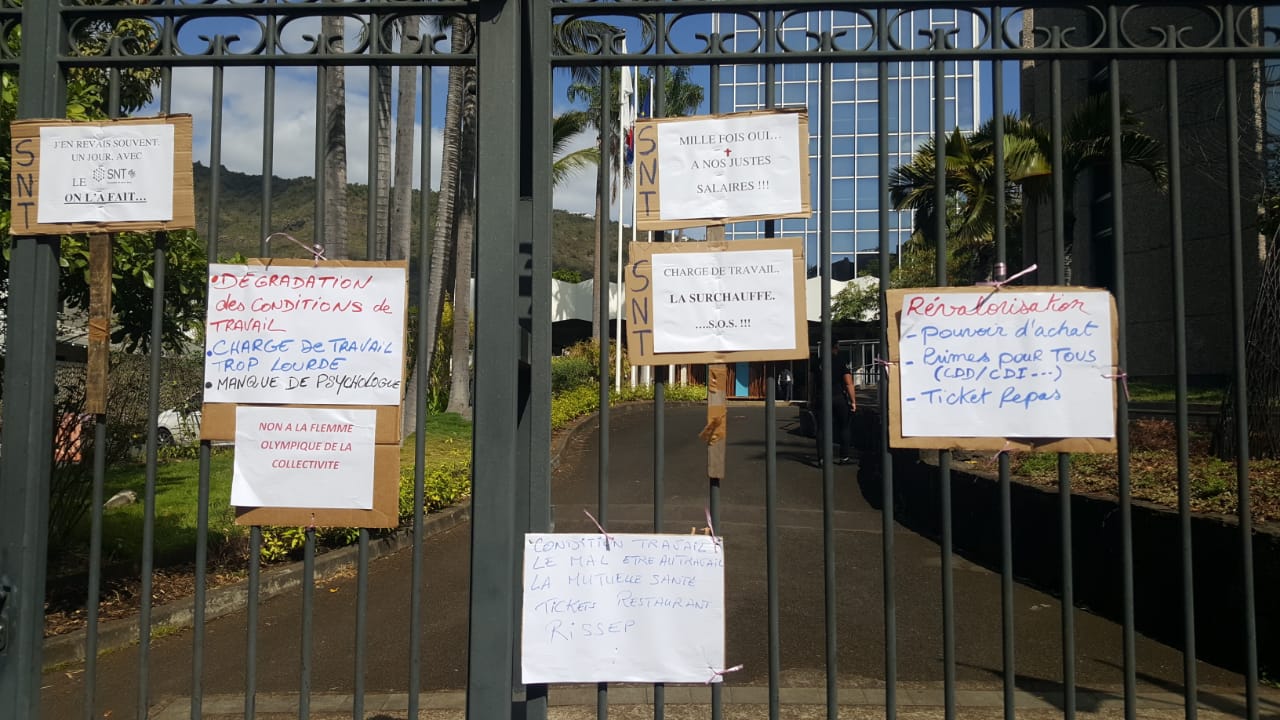 SNT
J'EN REVAIS SOUVENT.
UN JOUR. AVEC
LE SNT
ON L'A FAIT...
• DÉGRADATION
des CONDITIONS de
TRAVAIL
• CHARGE De TRAVAIL
TROP LOURDE
• MANQUE DE PSYCHOLOGUE
NON A LA FLEMME
OLYMPIQUE DE LA
COLLECTIVITE
SNT
MILLE FOIS OUI...
A NOS JUSTES
SALAIRES !!!
SNT
CHARGE DE TRAVAIL.
LA SURCHAUFFE.
....S.O.S. !!!
CONDITION TRAVAIL
LE MAL ETRE AU TRAVAIL
LA MUTUELLE SANTE
TICKETS RESTAURANT
RISSEP
Révalorisation
- pouvoir d'achat
- Primes pour TOUS
(CDD/CDI---)
- Ticket Repas